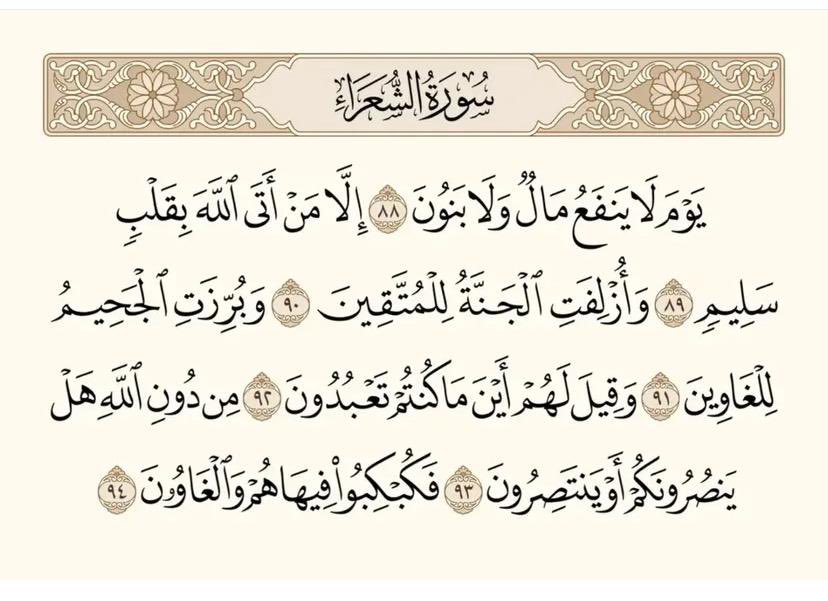 سُورَةُ الشُّعَرَاءِ
يَوْمَ لَا يَنفَعُ مَالٌ وَلَا بَنُونَ ٨٨ إِلَّا مَنْ أَتَى ٱللَّهَ بِقَلْبٍ
سَلِيمٍ ٨٩ وَأُزْلِفَتِ ٱلْجَنَّةُ لِلْمُتَّقِينَ ٩٠ وَبُرِّزَتِ ٱلْجَحِيمُ
لِلْغَاوِينَ ٩١ وَقِيلَ لَهُمْ أَيْنَ مَا كُنتُمْ تَعْبُدُونَ ٩٢ مِن دُونِ ٱللَّهِ هَلْ
يَنصُرُونَكُمْ أَوْ يَنتَصِرُونَ ٩٣ فَكُبْكِبُوا۟ فِيهَا هُمْ وَٱلْغَاوُۥنَ ٩٤